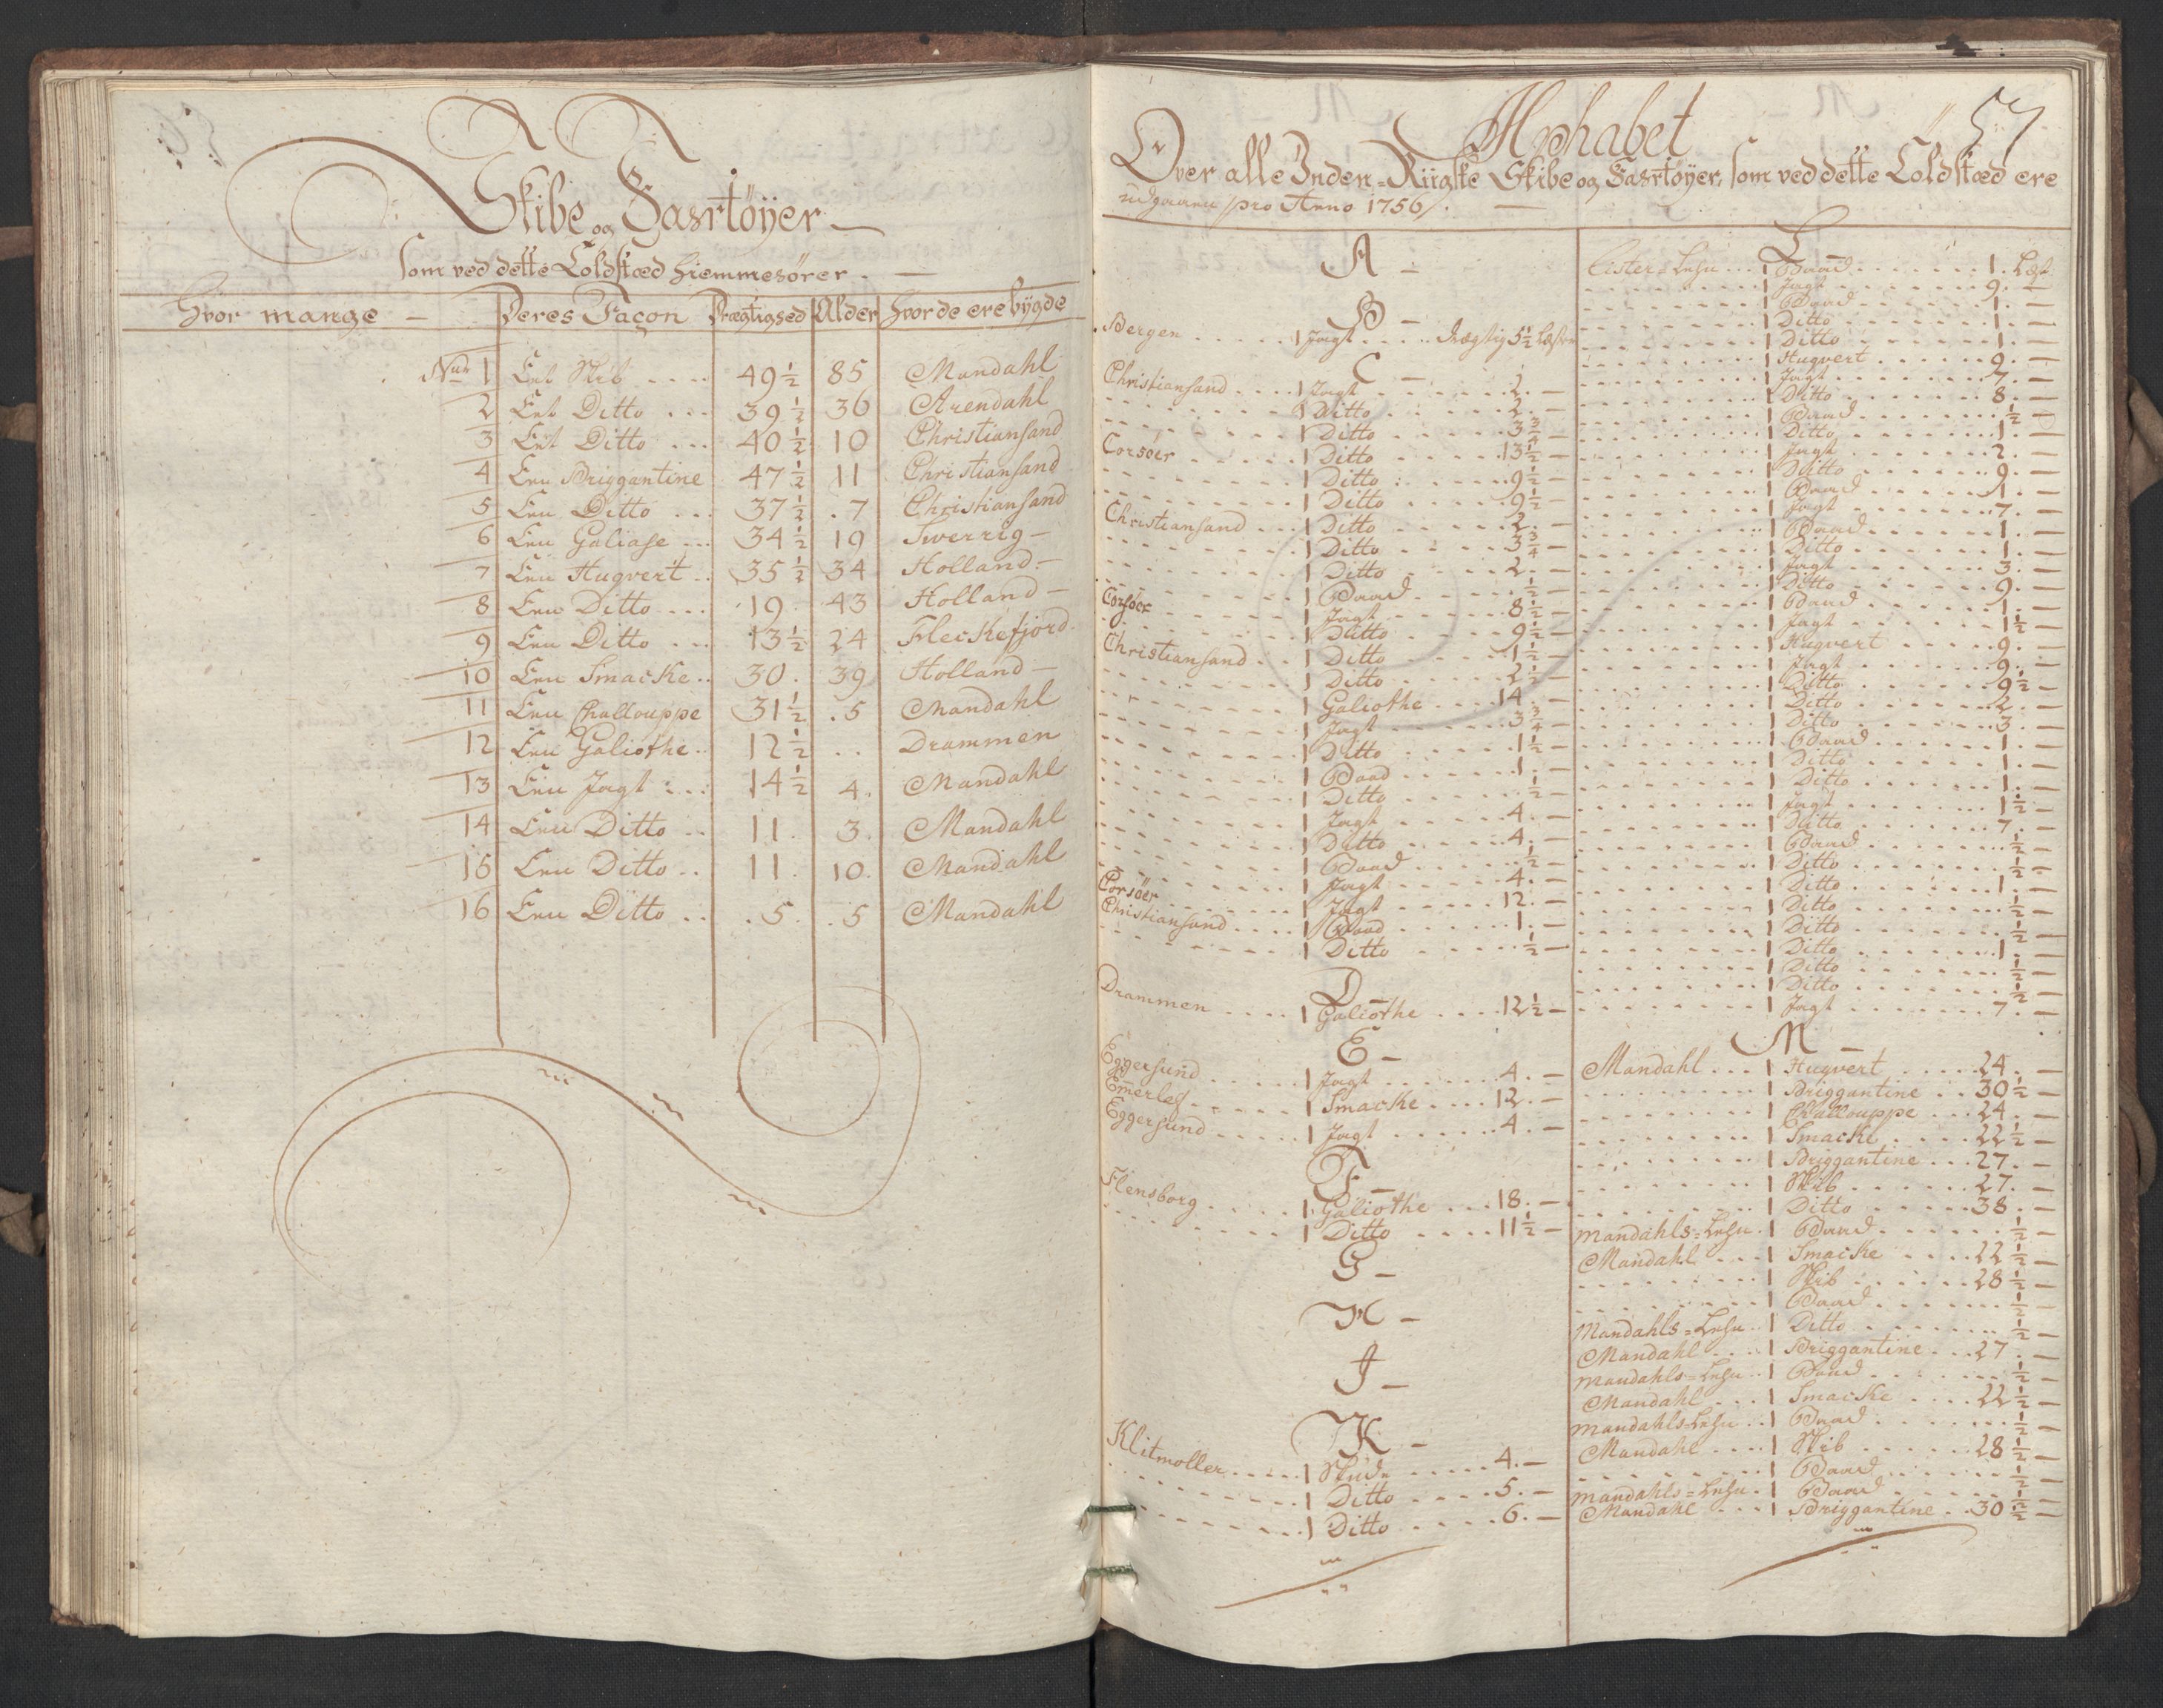 Skibe og Fasrtøyer
Som ved dette Toldsted hiemmehörer.
Hvor mange — Deres Façon Drægtighed Alder Hvor de ere bÿgde
No 1 Eet Skib .... 49 1/2 85 Mandahl
2 Eet Ditto ... 39 1/2 36 Arendahl
3 Eet Ditto ... 40 1/2 10 Christiansand
4 Een Briggantine 47 1/2 11 Christiansand
5 Een Ditto ... 37 1/2 . 7 Christiansand
6 Een Galiase ... 34 1/2 19 Sverrig —
7 Een Huqvert .. 35 1/2 34 Holland —
8 Een Ditto .... 19. 43 Holland —
9 Een Ditto ... 13 1/2 24 Fleckefjord
10 Een Smacke .. 30. 39 Holland —
11 Een Challouppe 31 1/2 . 5 Mandahl
12 Een Galiothe .. 12 1/2 .. Drammen
13 Een Jagt ... 14 1/2 4. Mandahl
14 Een Ditto .. 11. 3. Mandahl
15 Een Ditto .. 11. 10. Mandahl
16 Een Ditto .. . 5. . 5 Mandahl
57
Alphabet
Over alle Inden-Riigske Skibe og Fasrtøyer, som ved dette Toldsted ere
udgaaen pro Anno 1756.
A —
B —
Bergen ..... 1 Jagt .... drægtig 5 1/2 Læster
C —
Christiansand .... 1 Jagt ...... 2. —
1 Ditto ..... 2. —
1 Ditto ..... 3 3/4 —
Corsöer ..... 1 Ditto ..... 13 1/2 —
1 Ditto ..... 9 1/2 —
1 Ditto ..... 9 1/2 —
Christiansand ... 1 Ditto ..... 2. —
1 Ditto ..... 3 3/4 —
1 Ditto ..... 2. —
1 Baad ..... 1/2 —
Corsöer 1 Jagt ..... 8 1/2 —
1 Ditto ..... 9 1/2 —
Christiansand .. 1 Ditto ..... 1 1/2 —
1 Ditto ..... 2 1/2 —
1 Galiothe .... 14. —
1 Jagt ..... 3 3/4 —
1 Ditto ..... 1 1/2 —
1 Baad ..... 1. —
1 Ditto ..... 1/2 —
1 Jagt ..... 4. —
1 Ditto ..... 4. —
1 Baad ..... 1/2 —
1 Jagt ..... 4. —
Corsöer 1 Jagt ..... 12. —
Christiansand .... 1 Baad ..... 1. —
1 Ditto ..... 1/2 —
D —
Drammen .... 1 Galiothe .... 12 1/2 —
E —
Eggersund ..... 1 Jagt ...... 4. —
Em̅erlef ..... 1 Smacke .... 12. —
Eggersund ..... 1 Jagt ...... 4. —
F —
Flensborg ..... 1 Galiothe ... 18. —
1 Ditto .... 11 1/2 —
G —
H —
J —
K —
Klitmøller ..... 1 Skude ..... 4. —
1 Ditto ..... 5. —
1 Ditto ..... 6. —
L
Lister-Lehn ... 1 Baad ...... 1. Læst
1 Jagt ...... 9. —
1 Baad ...... 1. —
1 Ditto ...... 1. —
1 Ditto ...... 1. —
1 Huqvert ..... 9. —
1 Jagt ...... 7. —
1 Ditto ...... 8. —
1 Baad ...... 1/2 —
1 Ditto ...... 1. —
1 Jagt ...... 2. —
1 Ditto ...... 9. —
1 Baad ...... 1. —
1 Jagt ...... 7. —
1 Baad ...... 1. —
1 Ditto ...... 1. —
1 Jagt ...... 3. —
1 Ditto ...... 9. —
1 Baad ...... 1. —
1 Jagt ...... 1 1/2 —
1 Huqvert ..... 9. —
1 Jagt ...... 9. —
1 Ditto ...... 9 1/2 —
1 Ditto ...... 2. —
1 Ditto ...... 3. —
1 Baad ...... 1. —
1 Ditto ...... 1. —
1 Ditto ...... 1. —
1 Jagt ...... 1 1/2 —
1 Ditto ...... 7. —
1 Baad ...... 1/2 —
1 Ditto ...... 1/2 —
1 Ditto ...... 1. —
1 Ditto ...... 1/2 —
1 Ditto ...... 1/2 —
1 Ditto ...... 1. —
1 Ditto ...... 1/2 —
1 Ditto ...... 1/2 —
1 Jagt ...... 7. —
M —
Mandahl ... 1 Huqvert .... 24. —
1 Briggantine . 30 1/2 —
1 Challouppe ... 24. —
1 Smacke .... 22 1/2 —
1 Briggantine ... 27. —
1 Skib ...... 27. —
1 Ditto ...... 38. —
Mandahls-Lehn . 1 Baad ...... 1/2 —
Mandahl ... 1 Smacke .... 22 1/2 —
1 Skib ...... 28 1/2 —
1 Baad ...... 1/2 —
Mandahls-Lehn .. 1 Ditto ...... 1/2 —
Mandahl .... 1 Briggantine ... 27. —
Mandahls-Lehn .. 1 Baad ...... 1/2 —
Mandahl .... 1 Smacke .... 22 1/2 —
Mandahls-Lehn .. 1 Baad ...... 1/2 —
Mandahl .... 1 Skib ...... 28 1/2 —
1 Baad ...... 1/2 —
Mandahls-Lehn . 1 Baad ...... 1/2 —
Mandahl ... 1 Briggantine .. 30 1/2 —